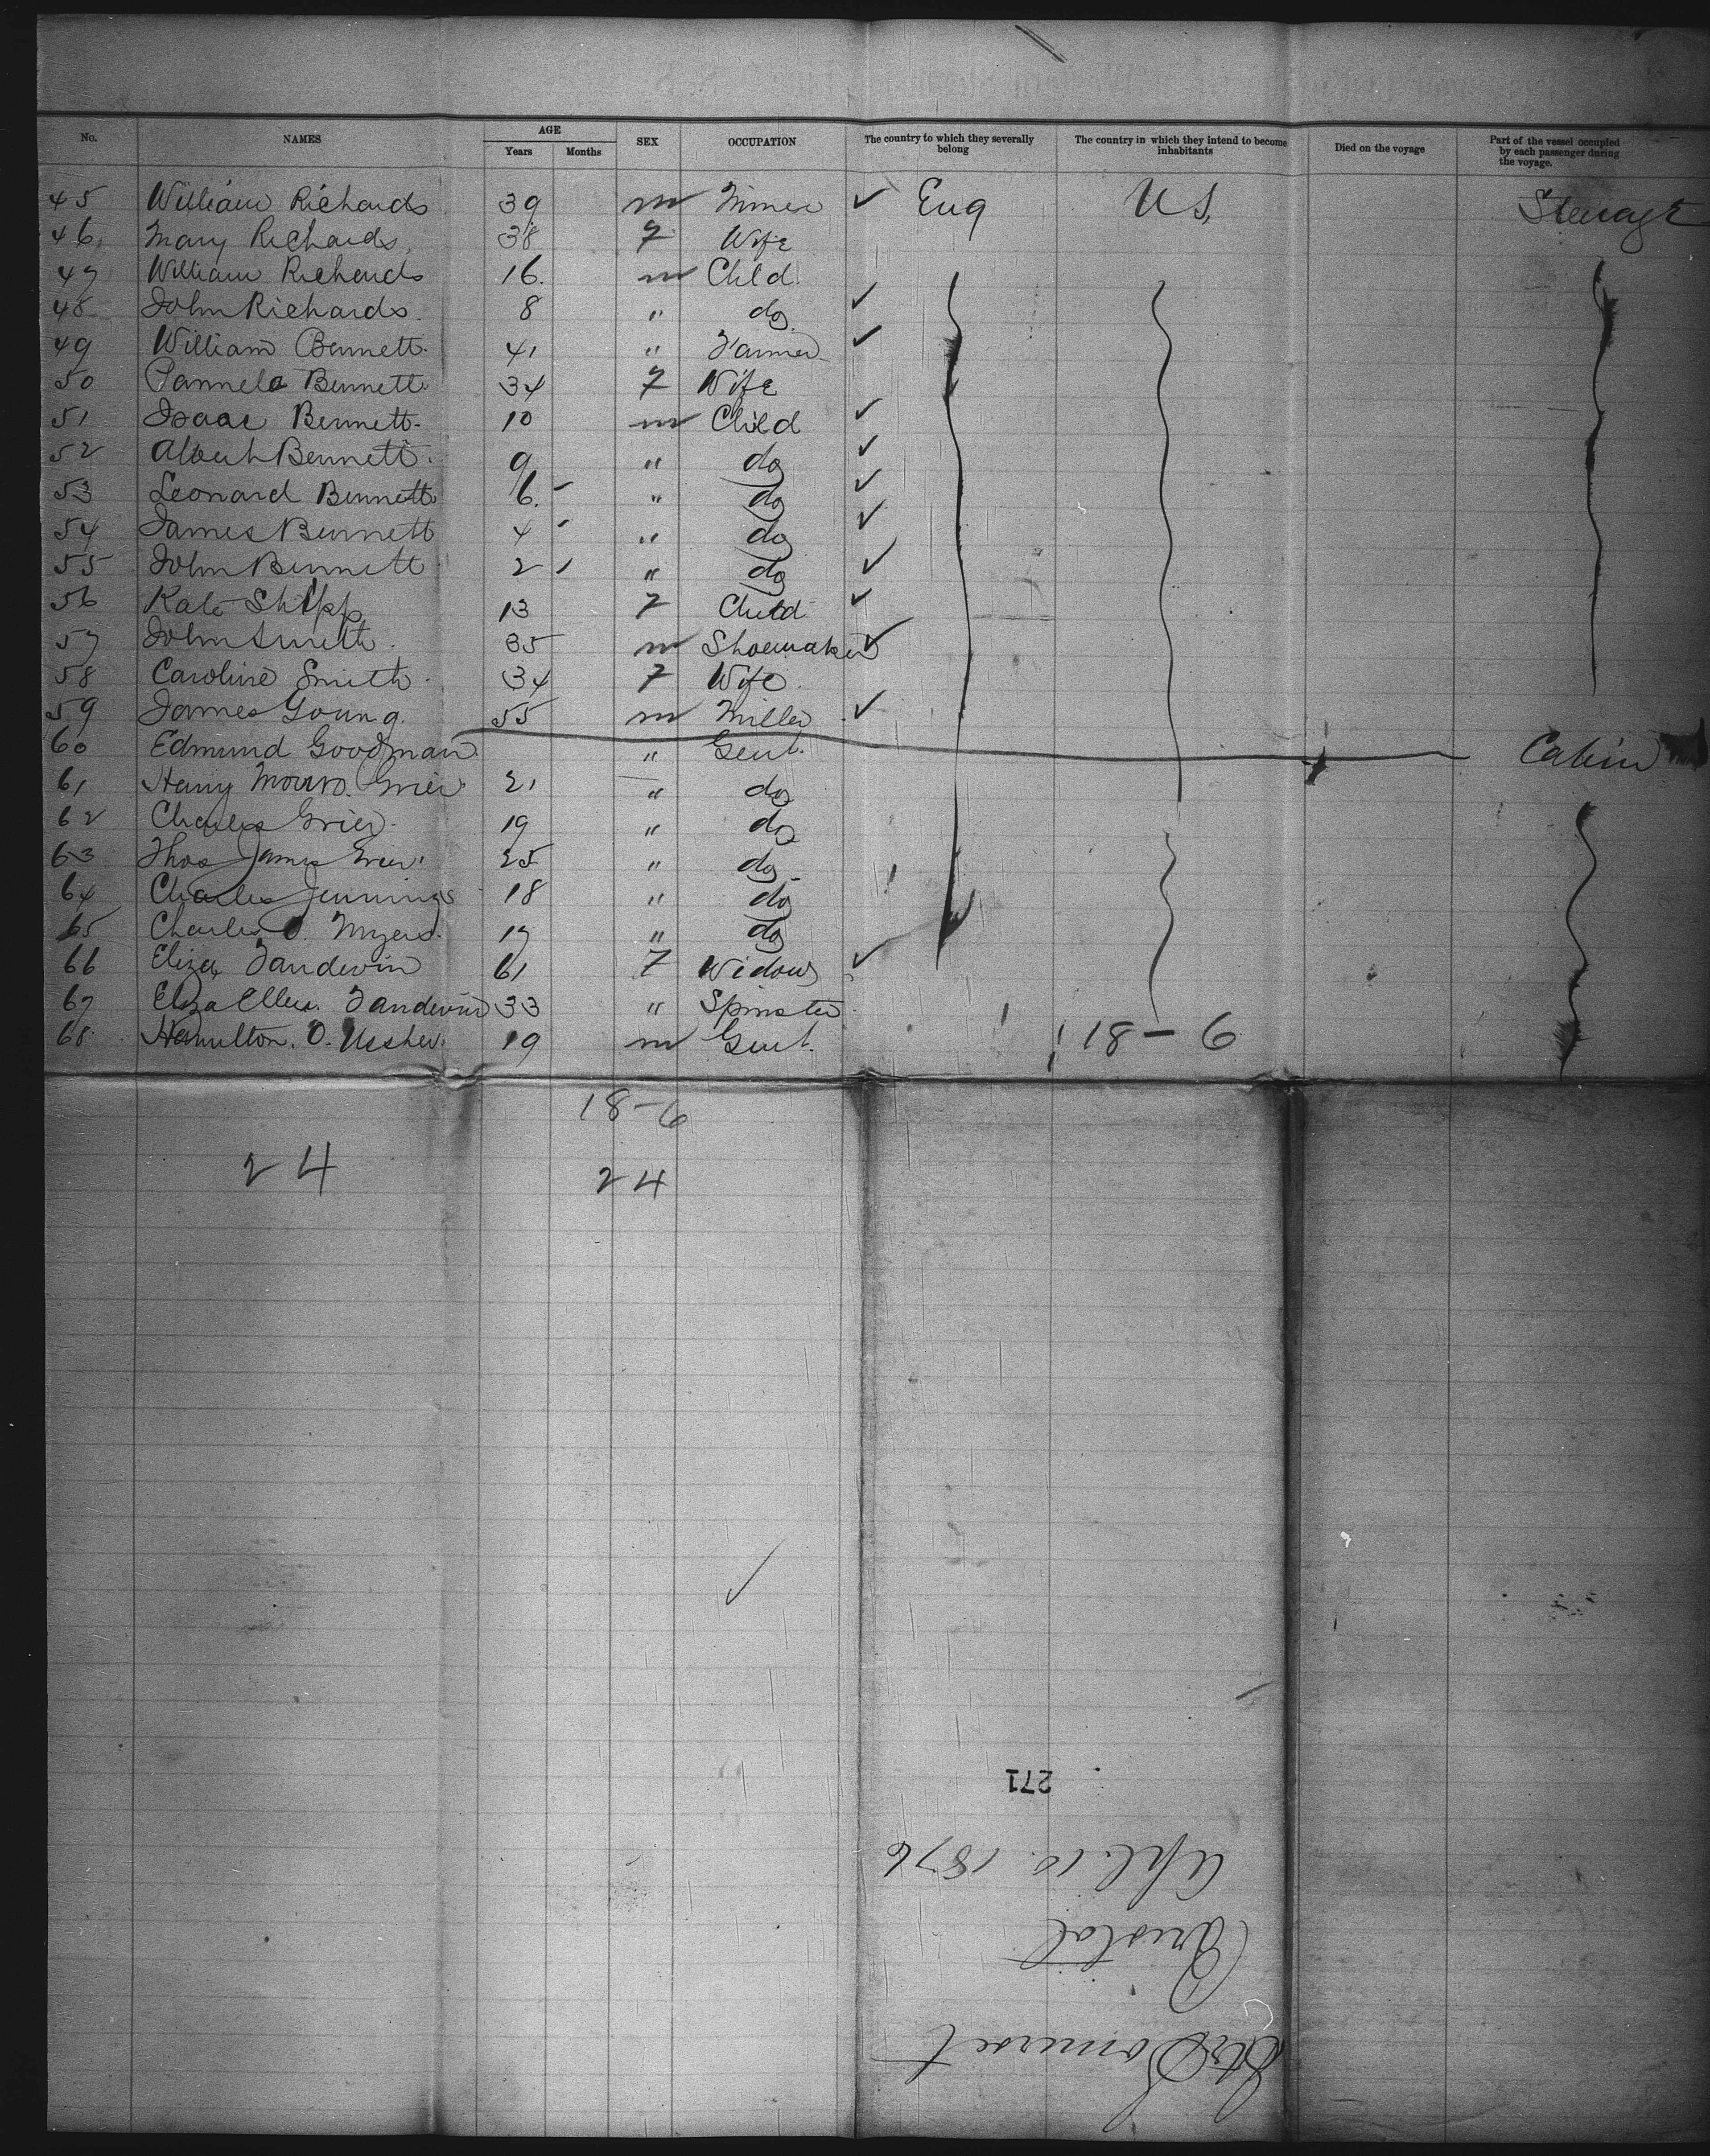 No. NAMES AGE Years Months SEX OCCUPATION The country to which they severally belong The country in which they intend to become inhabitants Died on the voyage Part of the vessel occupied by each passenger during the voyage.
45 William Richards 39 m Miner ✓ Eng U S. Steerage
46 Mary Richards 38 F Wife
47 William Richards 16 m Child
48 John Richards 8 " do ✓
49 William Bennett 41 " Farmer ✓
50 Pamela Bennett 34 F Wife
51 Isaac Bennett 10 m Child ✓
52 Albert Bennett 9 " do ✓
53 Leonard Bennett 6 " do ✓
54 James Bennett 4 " do ✓
55 John Bennett 2 " do ✓
56 Kate Shipp 13 F Child ✓
57 John Smith 35 m Shoemaker ✓
58 Caroline Smith 34 F Wife
59 James Young 55 m Miller ✓
60 Edmund Goodman " Gent. Cabin
61 Harry Munro Grier 21 " do
62 Charles Grier 19 " do
63 Thos James Grier 25 " do
64 Charles Jennings 18 " do
65 Charles O. Myers 17 " do
66 Eliza Tandevin 61 F Widow ✓
67 Eliza Ellen Tandevin 33 " Spinster
68 Hamilton O. Ussher 19 m Gent.
18 - 6
18-6
24 24
✓
271
Apl. 10. 1876
Bristol
Str Somerset